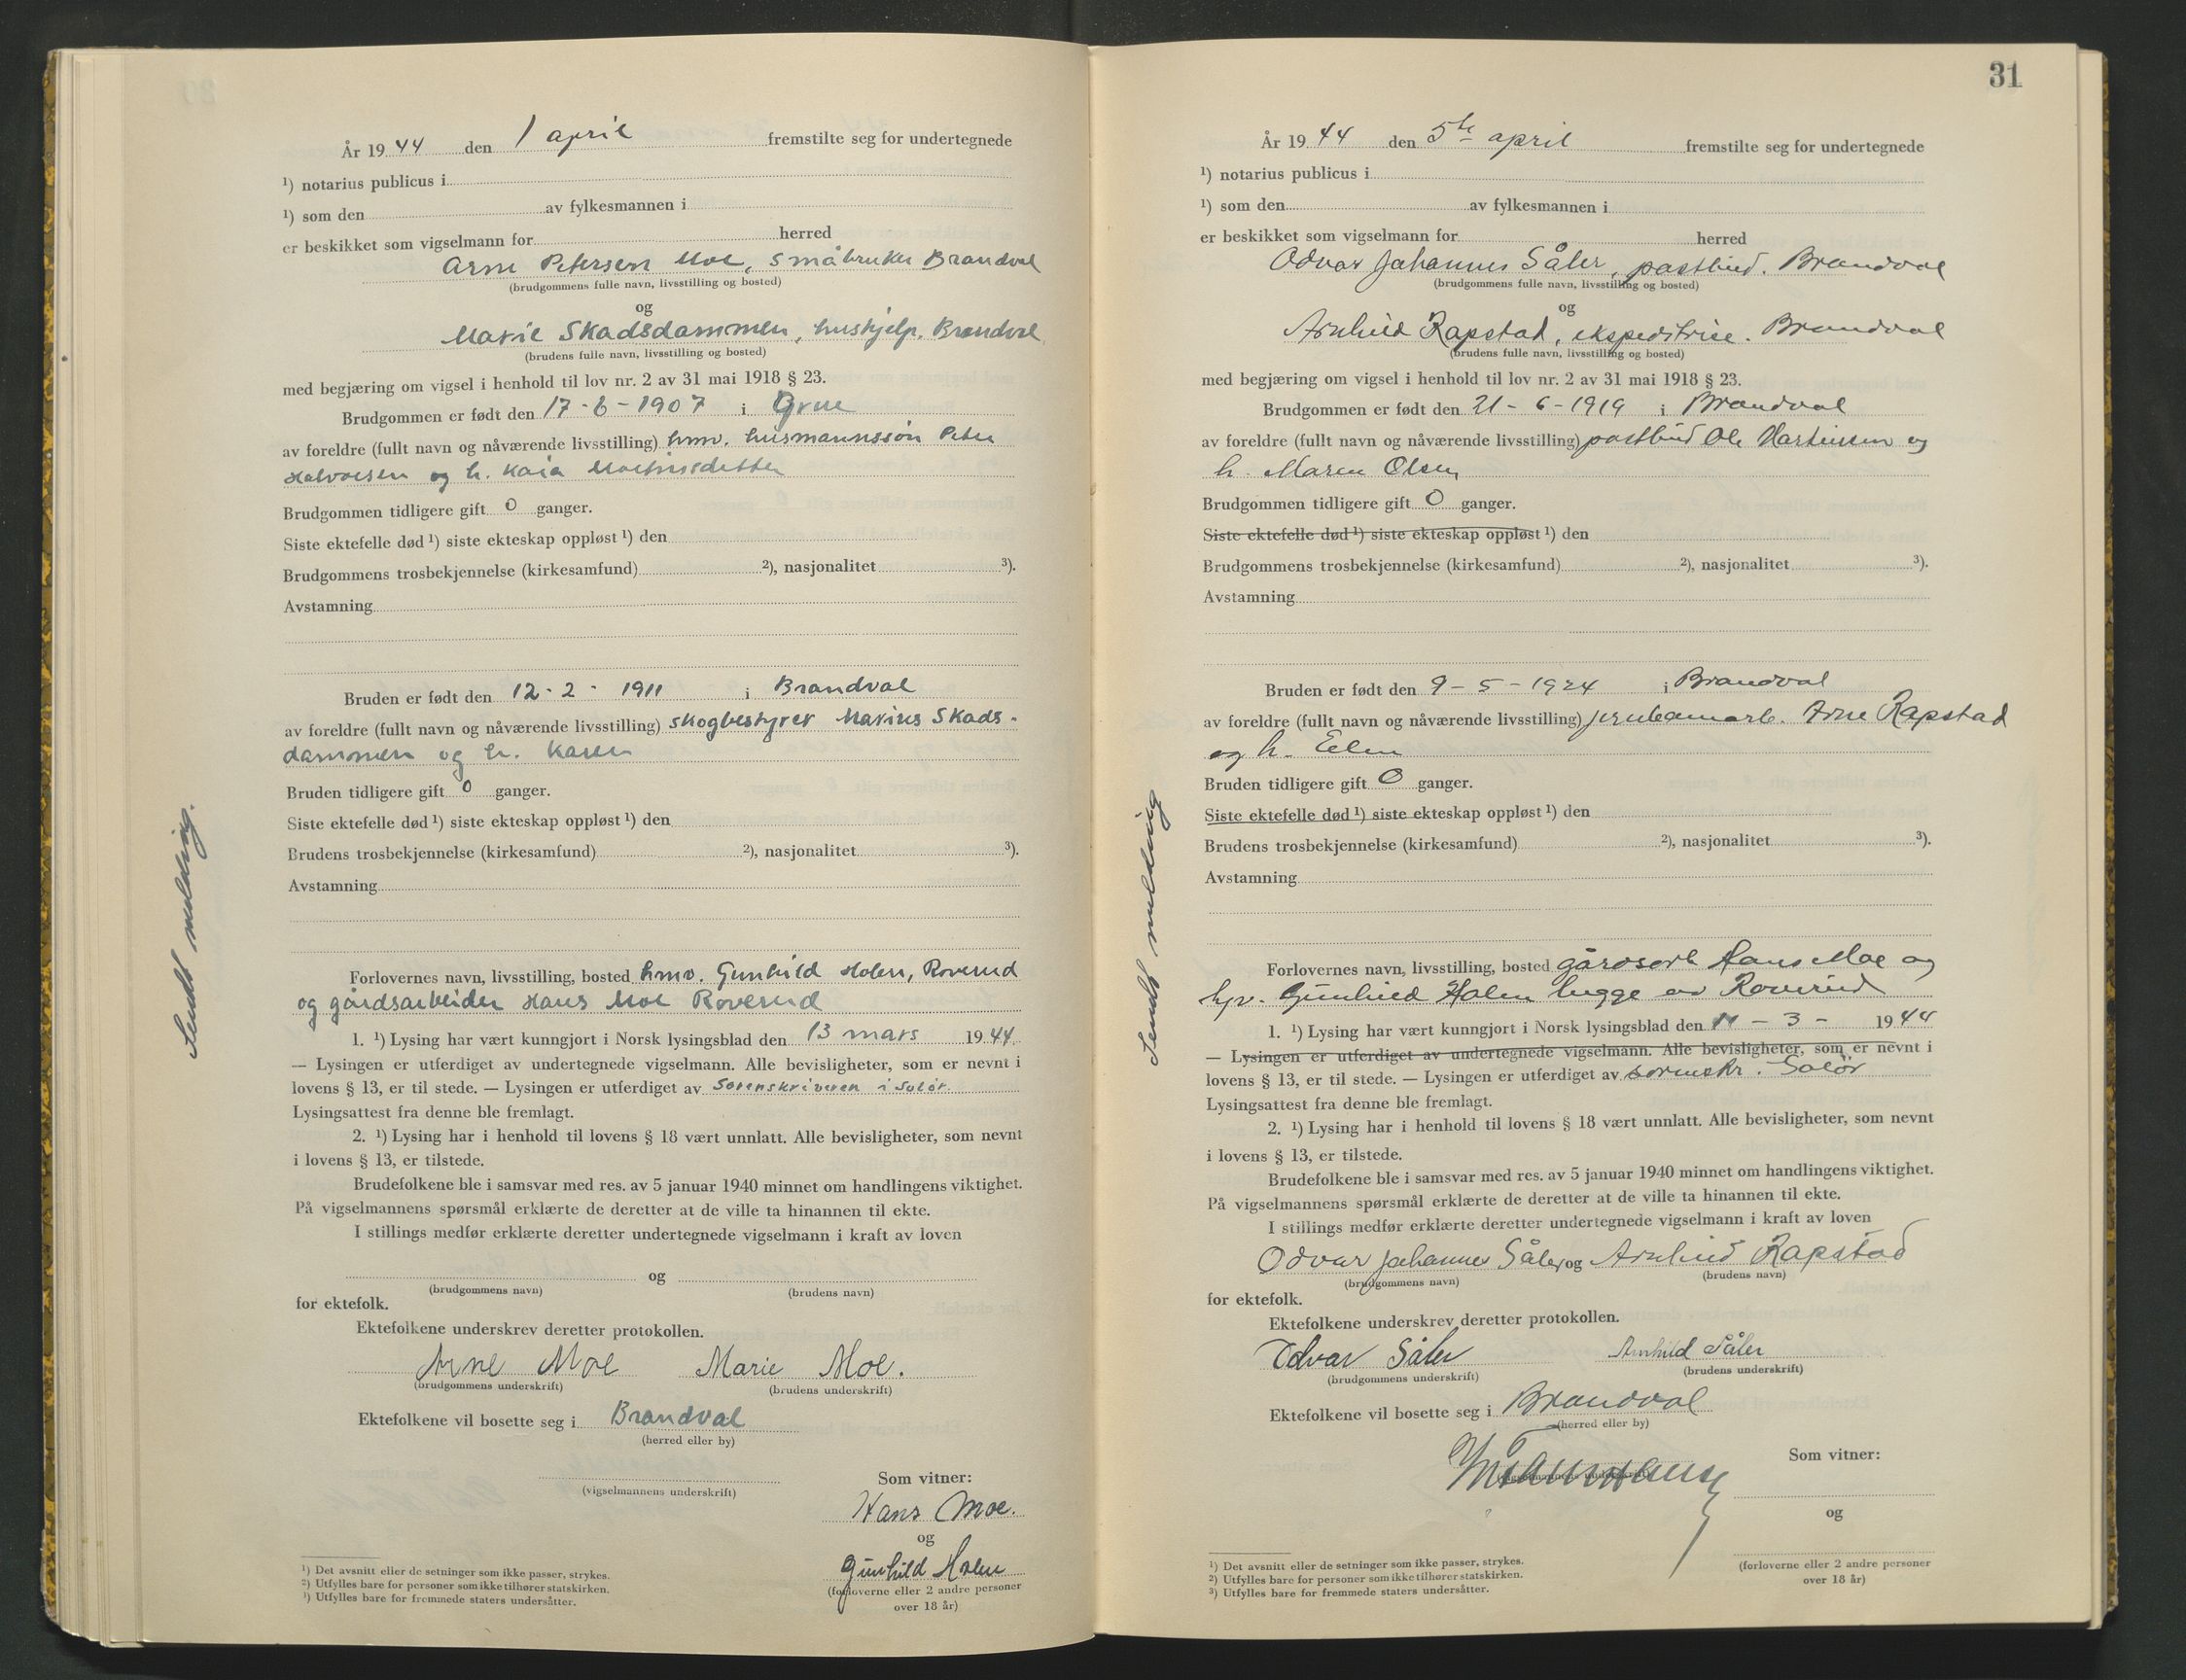 År 19 44 den 1 april fremstilte seg for undertegnede
¹) notarius publicus i
¹) som den av fylkesmannen i
er beskikket som vigselmann for herred
Arne Petersen Moe, småbruker Brandval
(brudgommens fulle navn, livsstilling og bosted)
og
Marie Skadsdammen, hushjelp. Brandval
(brudens fulle navn, livsstilling og bosted)
med begjæring om vigsel i henhold til lov nr. 2 av 31 mai 1918 § 23.
Brudgommen er født den 17-6-1907 i Grue
av foreldre (fullt navn og nåværende livsstilling) hmv. husmannssön Peter
Halvorsen og h. Kaia
Brudgommen tidligere gift 0 ganger.
Siste ektefelle død ¹) siste ekteskap oppløst ¹) den
Brudgommens trosbekjennelse (kirkesamfund) ²), nasjonalitet ³).
Avstamning
Bruden er født den 12-2-1911 i Brandval
av foreldre (fullt navn og nåværende livsstilling) skogbestyrer Marius Skads-
dammen og h. Karen
Bruden tidligere gift 0 ganger.
Siste ektefelle død ¹) siste ekteskap oppløst ¹) den
Brudens trosbekjennelse (kirkesamfund) ²), nasjonalitet ³).
Avstamning
Sendt melding.
Forlovernes navn, livsstilling, bosted hmv. Gunhild Holen, Roverud
og gårdsarbeider Hans Moe Roverud
1. ¹) Lysing har vært kunngjort i Norsk lysingsblad den 13 mars 19 44.
— Lysingen er utferdiget av undertegnede vigselmann. Alle bevisligheter, som er nevnt i
lovens § 13, er til stede. — Lysingen er utferdiget av Sorenskriveren i Solör.
Lysingsattest fra denne ble fremlagt.
2. ¹) Lysing har i henhold til lovens § 18 vært unnlatt. Alle bevisligheter, som nevnt
i lovens § 13, er tilstede.
Brudefolkene ble i samsvar med res. av 5 januar 1940 minnet om handlingens viktighet.
På vigselmannens spørsmål erklærte de deretter at de ville ta hinannen til ekte.
I stillings medfør erklærte deretter undertegnede vigselmann i kraft av loven
og
(brudgommens navn) (brudens navn)
for ektefolk.
Ektefolkene underskrev deretter protokollen.
Arne Moe Marie Moe.
(brudgommens underskrift) (brudens underskrift)
Ektefolkene vil bosette seg i Brandval
(herred eller by)
(vigselmannens underskrift)
Som vitner:
Hans Moe.
og
Gunhild Holen
(forloverne eller 2 andre personer
over 18 år)
¹) Det avsnitt eller de setninger som ikke passer, strykes.
²) Utfylles bare for personer som ikke tilhører statskirken.
³) Utfylles bare for fremmede staters undersåtter.
31
År 19 44 den 5te april fremstilte seg for undertegnede
¹) notarius publicus i
¹) som den av fylkesmannen i
er beskikket som vigselmann for herred
Odvar Johannes Såler, postbud. Brandval
(brudgommens fulle navn, livsstilling og bosted)
og
Arnhild Rapstad, ekspeditrise. Brandval
(brudens fulle navn, livsstilling og bosted)
med begjæring om vigsel i henhold til lov nr. 2 av 31 mai 1918 § 23.
Brudgommen er født den 21-6-1919 i Brandval
av foreldre (fullt navn og nåværende livsstilling) postbud Ole Martinsen og
h. Maren Olsen
Brudgommen tidligere gift 0 ganger.
Siste ektefelle død ¹) siste ekteskap oppløst ¹) den
Brudgommens trosbekjennelse (kirkesamfund) ²), nasjonalitet ³).
Avstamning
Bruden er født den 9-5-1924 i Brandval
av foreldre (fullt navn og nåværende livsstilling) jernbanearb. Arne Rapstad
og h. Ellen
Bruden tidligere gift 0 ganger.
Siste ektefelle død ¹) siste ekteskap oppløst ¹) den
Brudens trosbekjennelse (kirkesamfund) ²), nasjonalitet ³).
Avstamning
Sendt melding
Forlovernes navn, livsstilling, bosted gårdsarb Hans Moe og
Gunhild Holen begge av Roverud
1. ¹) Lysing har vært kunngjort i Norsk lysingsblad den - 3 - 19 44
— Lysingen er utferdiget av undertegnede vigselmann. Alle bevisligheter, som er nevnt i
lovens § 13, er til stede. — Lysingen er utferdiget av sorenskr. Solör
Lysingsattest fra denne ble fremlagt.
2. ¹) Lysing har i henhold til lovens § 18 vært unnlatt. Alle bevisligheter, som nevnt
i lovens § 13, er tilstede.
Brudefolkene ble i samsvar med res. av 5 januar 1940 minnet om handlingens viktighet.
På vigselmannens spørsmål erklærte de deretter at de ville ta hinannen til ekte.
I stillings medfør erklærte deretter undertegnede vigselmann i kraft av loven
Odvar Johannes Såler og Arnhild Rapstad
(brudgommens navn) (brudens navn)
for ektefolk.
Ektefolkene underskrev deretter protokollen.
Odvar Såler Arnhild Såler
(brudgommens underskrift) (brudens underskrift)
Ektefolkene vil bosette seg i Brandval
(herred eller by)
Som vitner:
og
(forloverne eller 2 andre personer
over 18 år)
¹) Det avsnitt eller de setninger som ikke passer, strykes.
²) Utfylles bare for personer som ikke tilhører statskirken.
³) Utfylles bare for fremmede staters undersåtter.